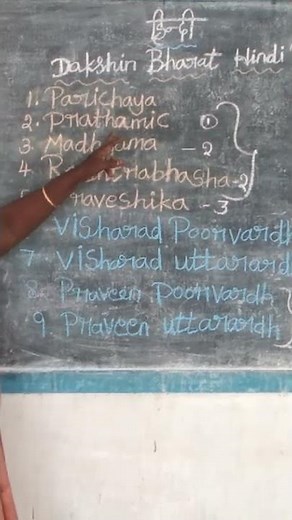 हिन्दी
Dakshin Bharat Hindi
1. Parichaya
2. Prathamic ①
3. Madhyama - 2
4 Rashtrabhasha-2
Praveshika - 3
Visharad Poorvardh
7. Visharad uttarard
8. Praveen Poorvardh
9. Praveen uttarardh